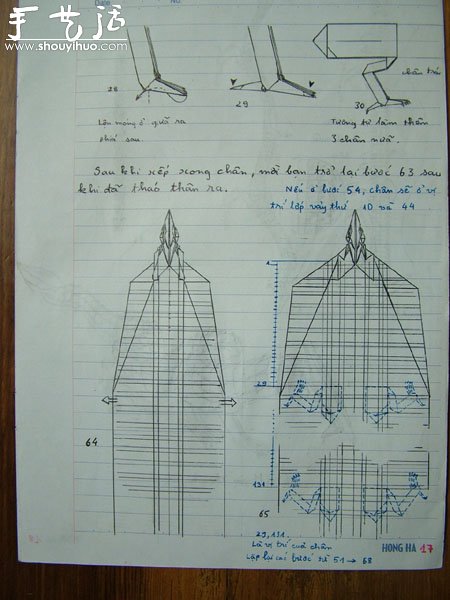 Date
No
手艺活
www.shouyihuo.com
28
29
30
chân trái
Lộn móng ở giữa ra
phía sau.
Tương tự làm thêm
3 chân nữa.
Sau khi xếp xong chân, mời bạn trở lại bước 63 sau
khi đã tháo thân ra.
Nếu ở bước 54, chân sẽ ở vị
trí lớp vảy thứ 10 và 44
1
29
64
131
65
29, 131.
Là vị trí của chân
Lặp lại các bước từ 51 → 68
HONG HA 17